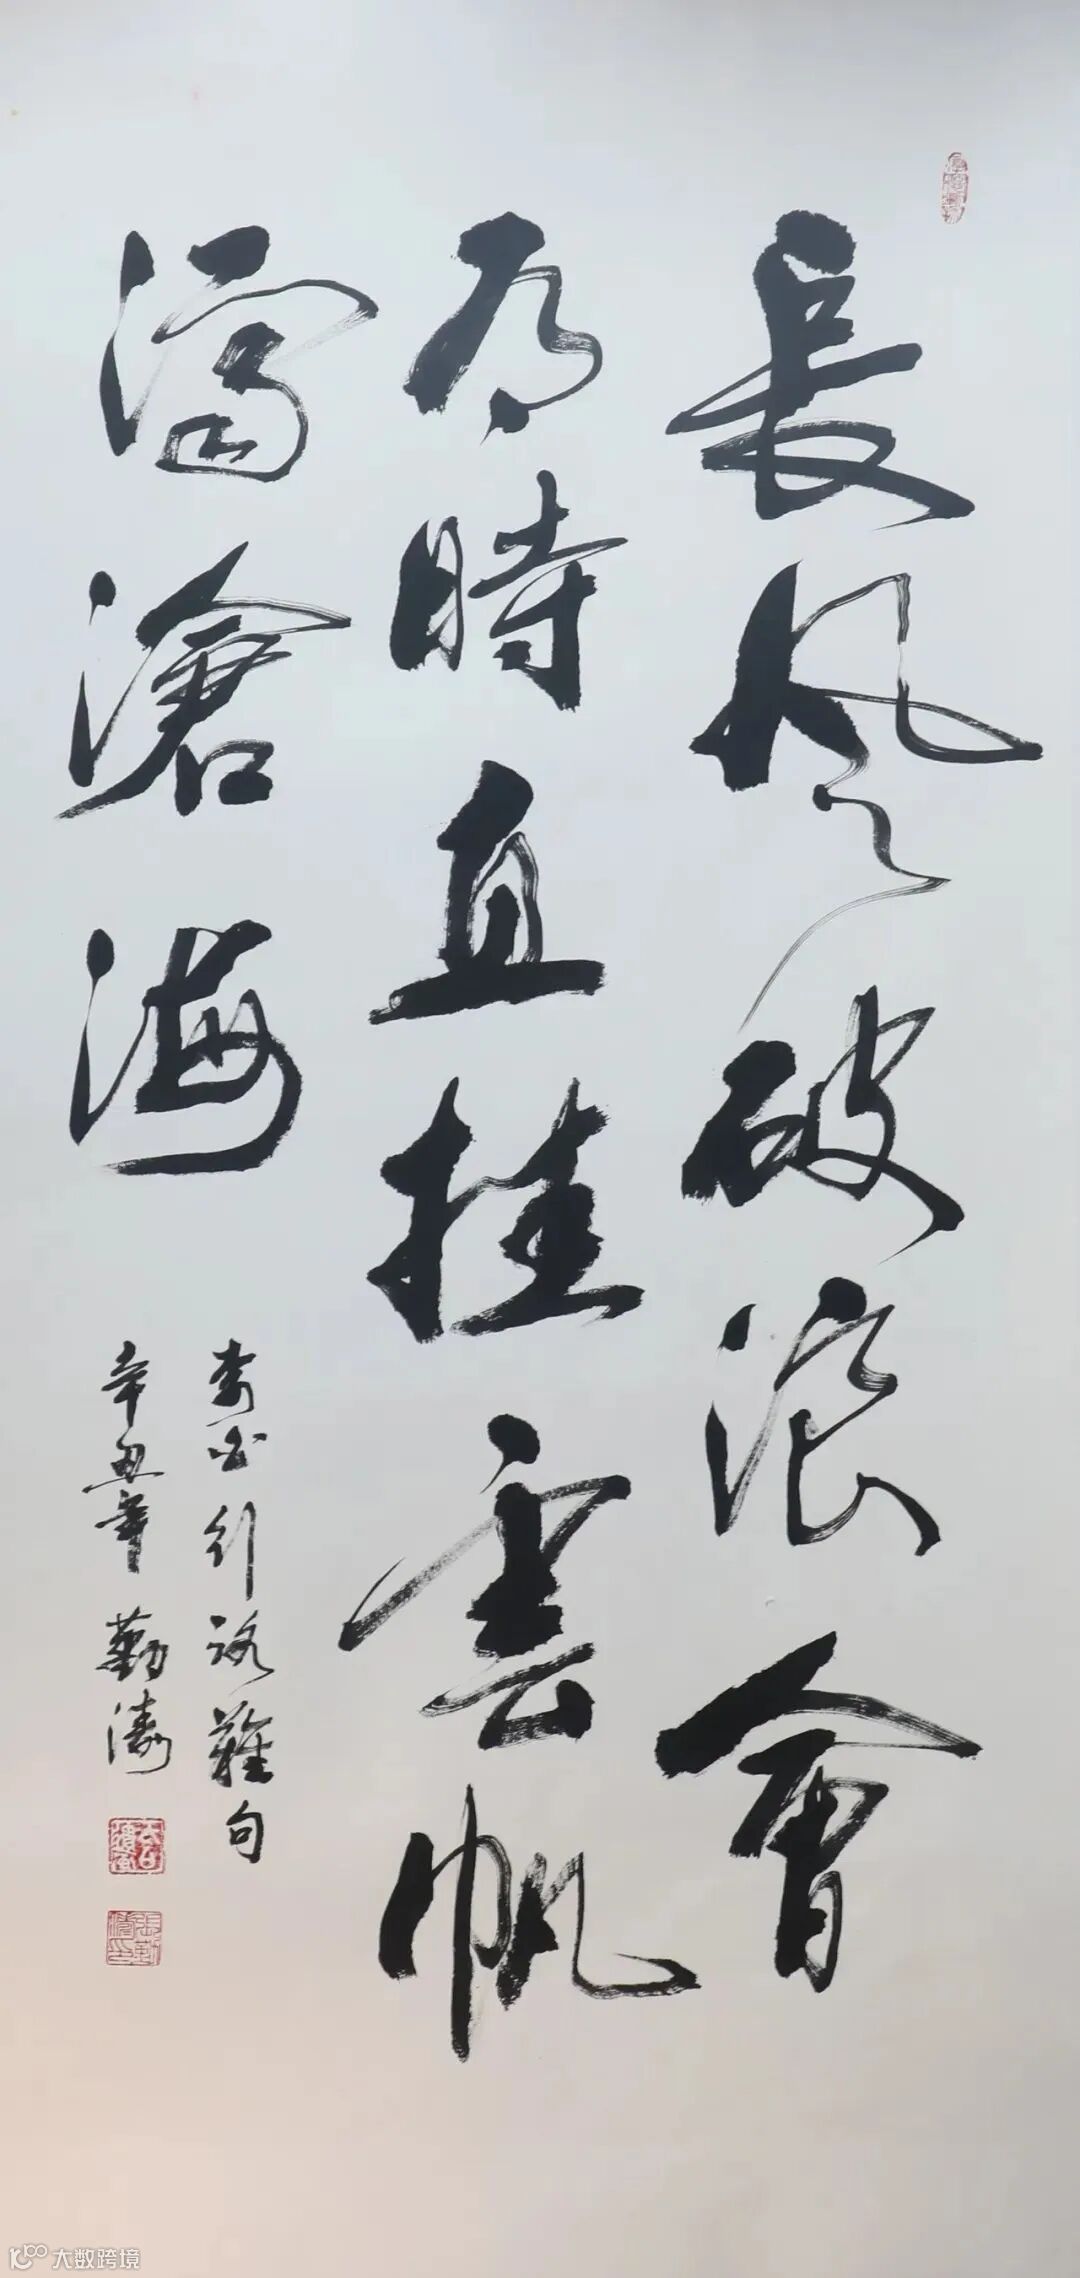 長風破浪會
有時直挂雲帆
濟滄海
李白行路難句
辛丑年 勤濤
大数跨境